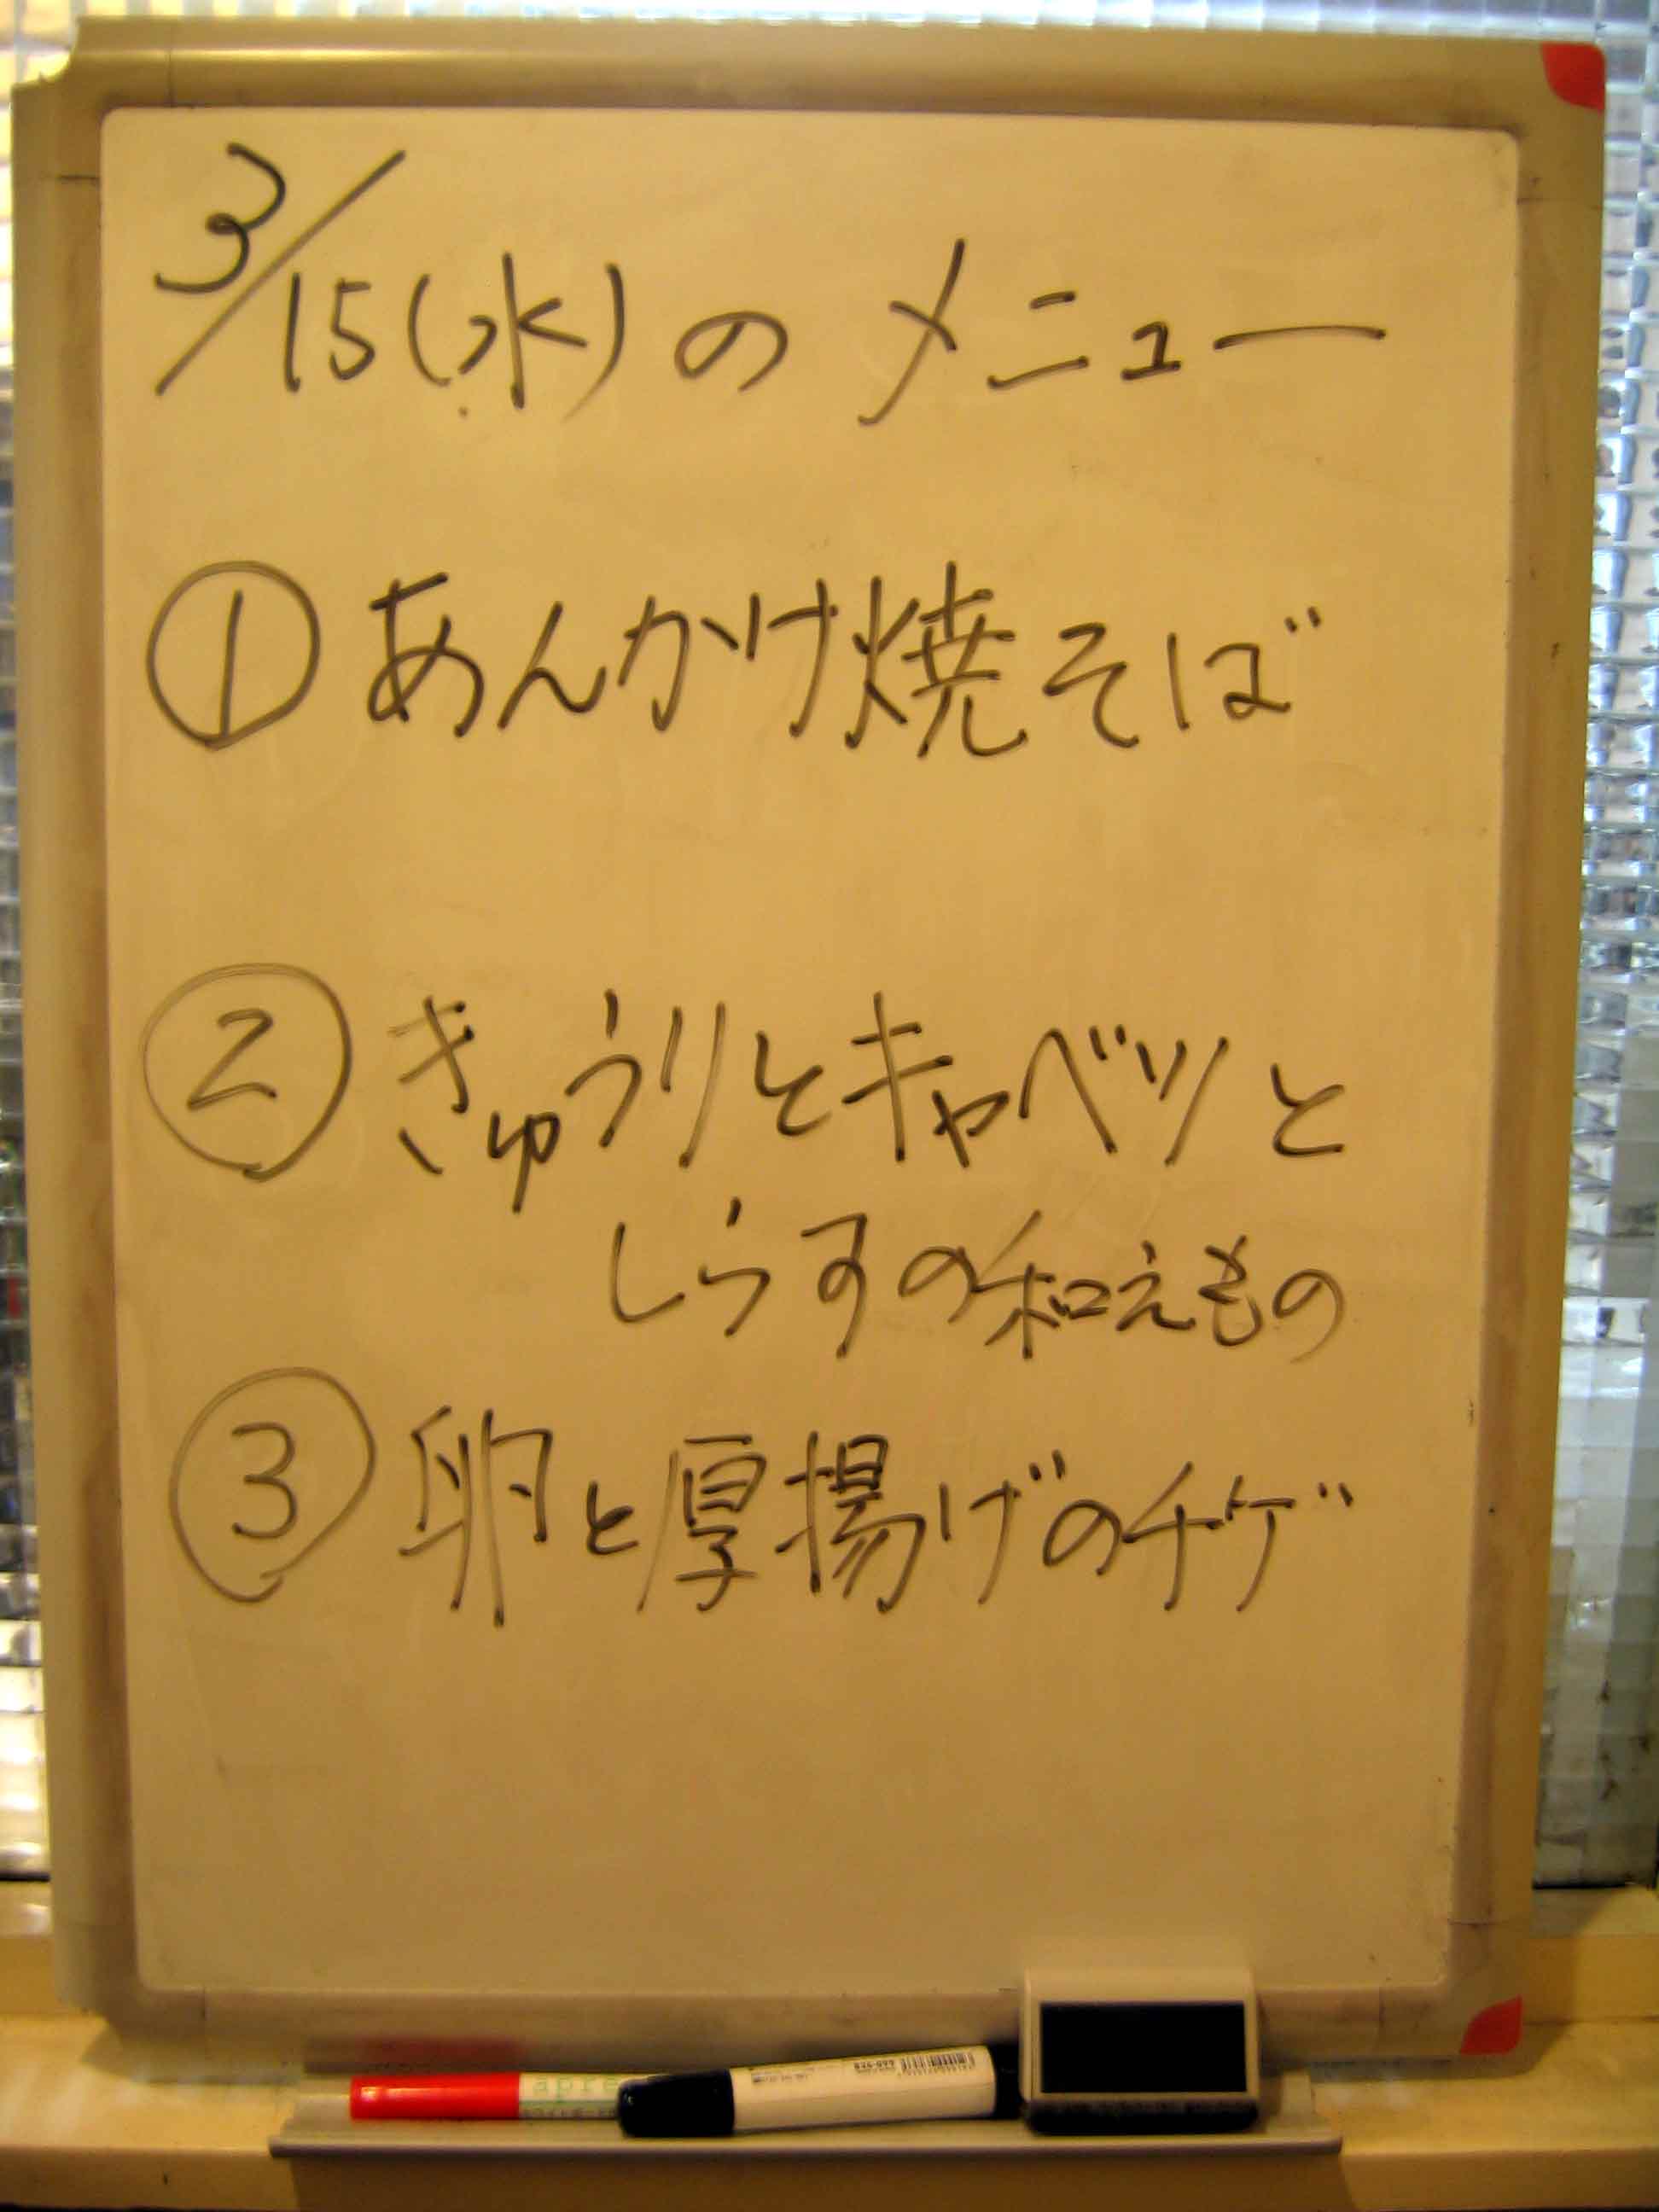 3/15(水)のメニュー
①あんかけ焼そば
②きゅうりとキャベツと
しらすの和えもの
③卵と厚揚げのチゲ
apre